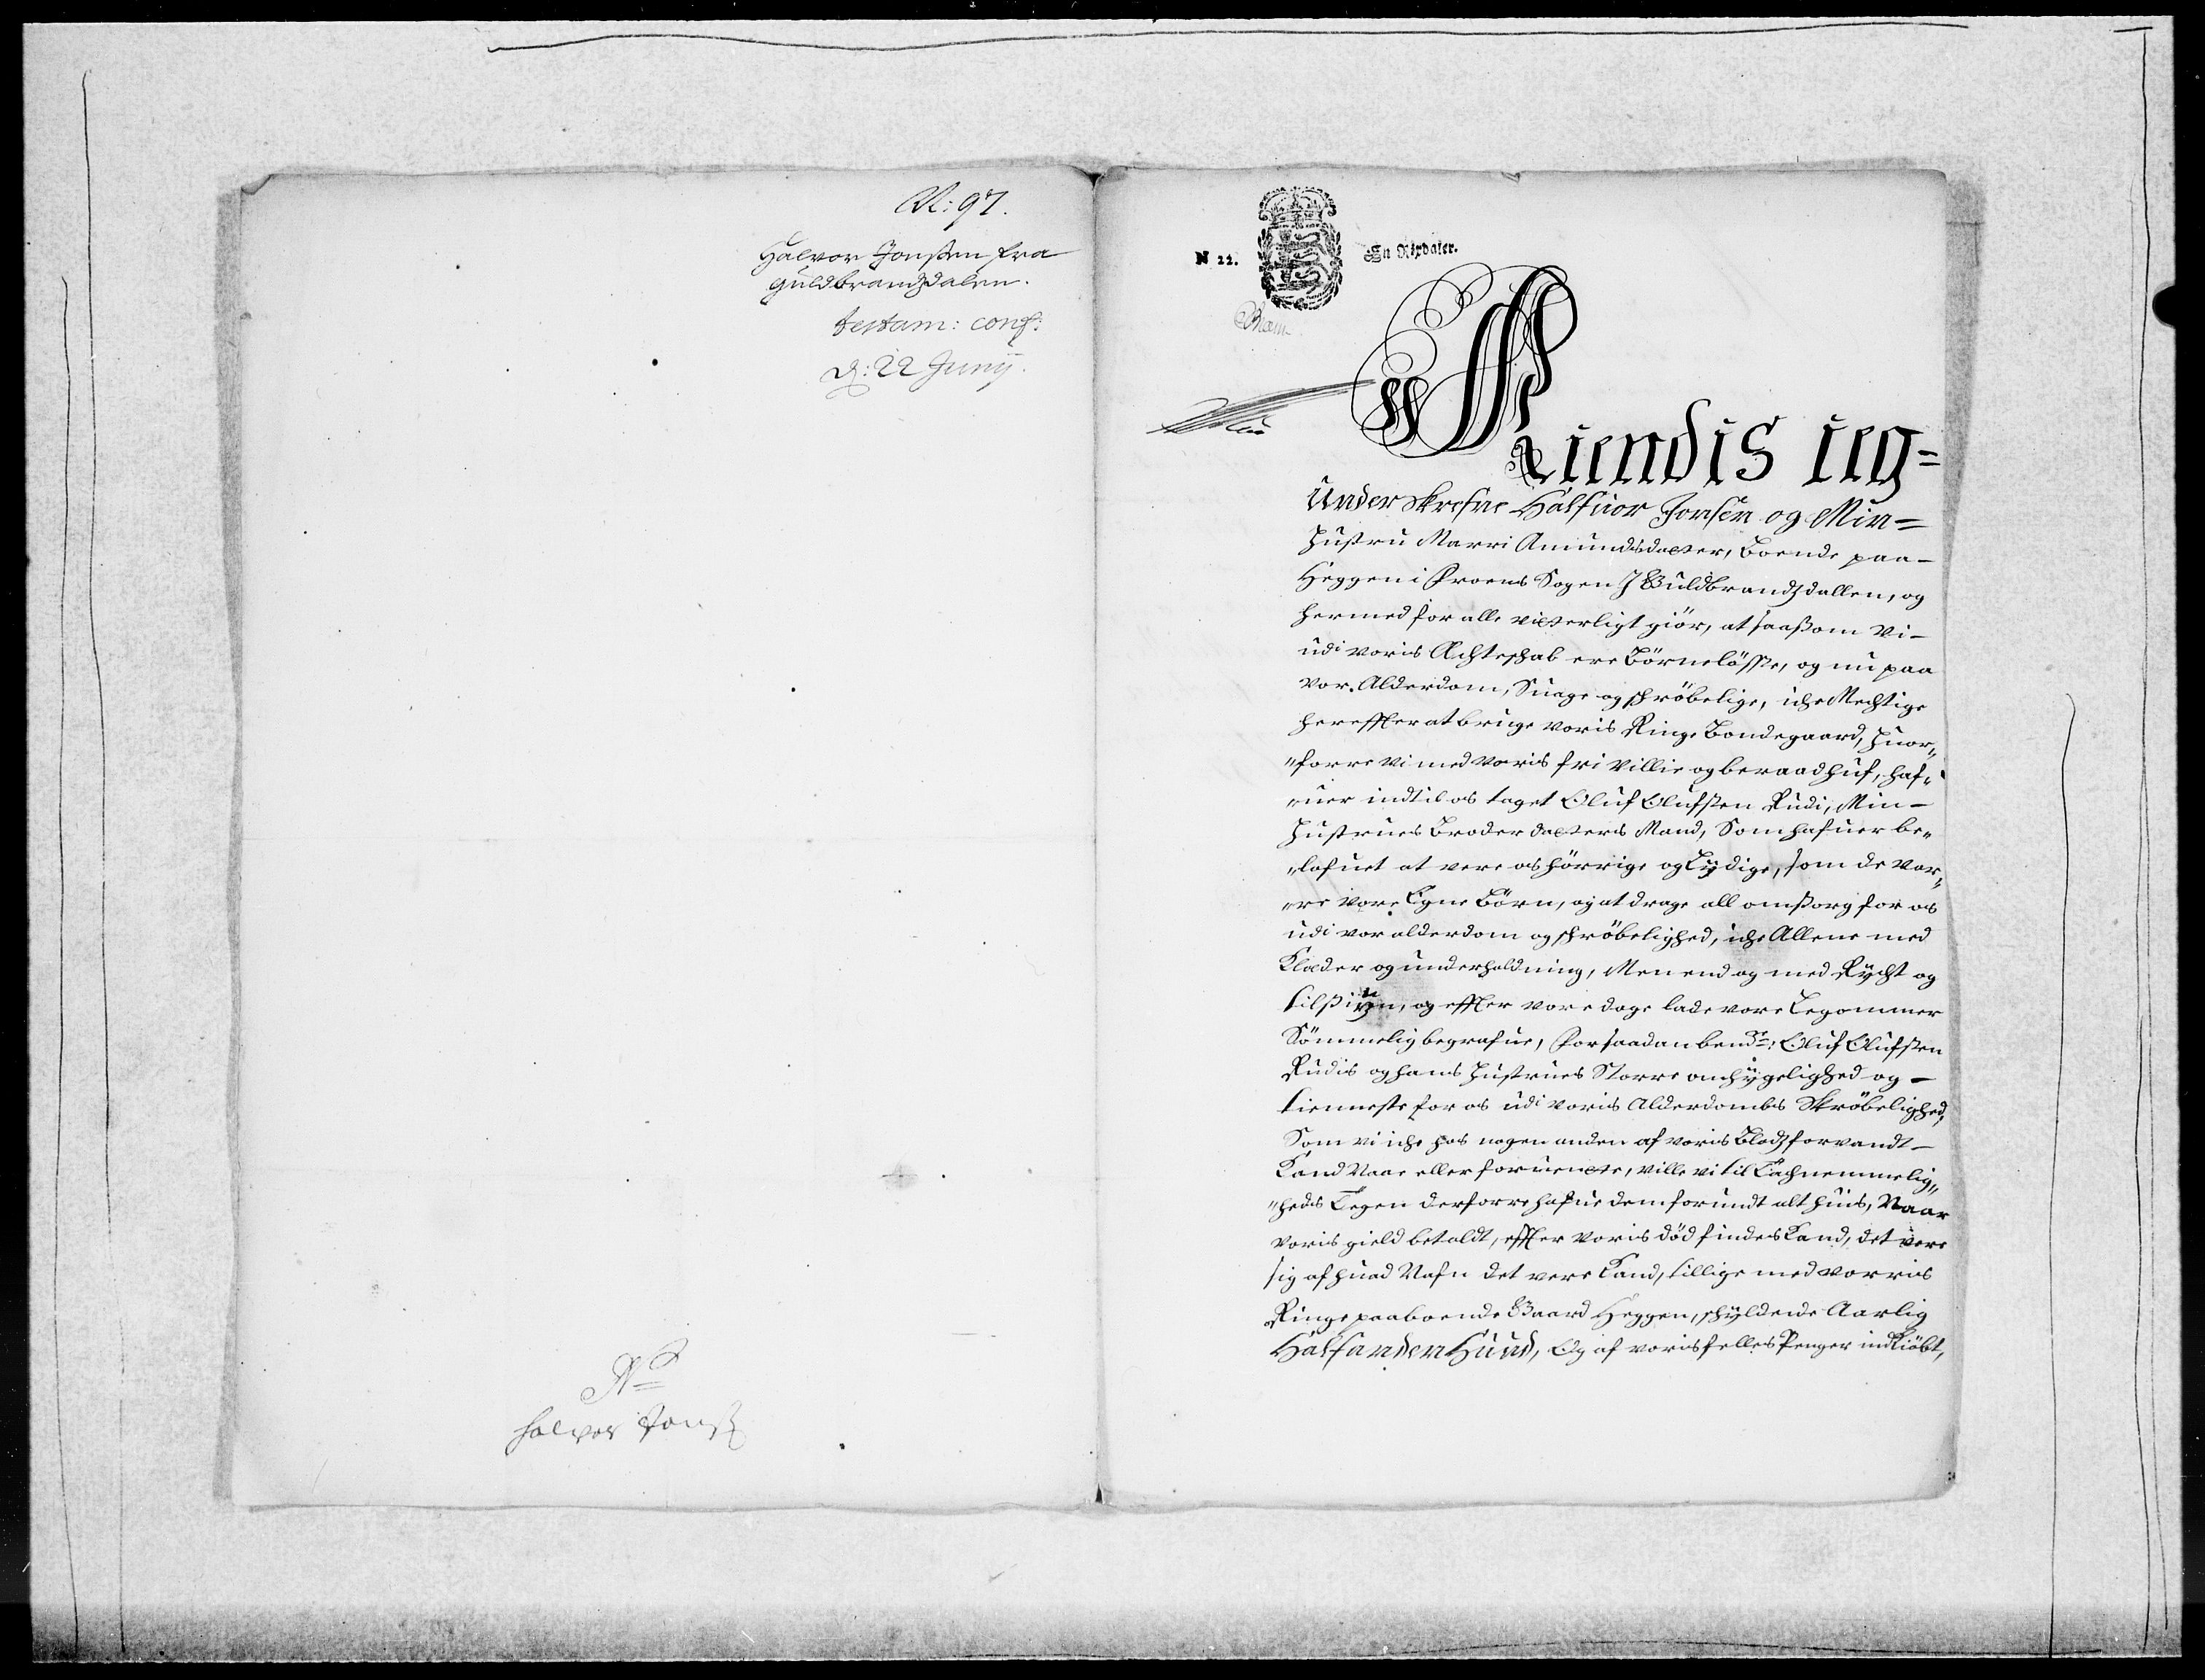 N: 97.
Halvor Jonssen fra
Guldbrandzdalen.
testam: conf:
d: 22 Junij.
No
halvor Jonss
N 22.
En Rixdaler.
Kiendis ieg=
Underskrefne Halfuor Jonsen og Min=
Hustru Marri Amundsdatter, Boende paa-
Heggen i Froens Sogen I Guldbrandzdallen, og
hermed for alle vitterligt giör, at saasom Vi-
udi voris Ächteschab ere Börnelösse, og nu paa
vor Alderdom, Suage og schröbelige, iche Mechtige
hereffter at bruge voris Ringe Bondegaard, huor„
„forre vi med voris fri Villie og beraad huf, haf„
„uer indtil os taget Oluf Olufsen Rudi, Min-
Hustrues Broder datters Mand, Som hafuer be„
„lofuet at vere os hörrige og Lÿdige, som de var„
„re vore Egne Börn, og at drage all omsorg for os
udi vor alderdom og schröbelighed, iche Allene med
Klæder og underholdning, Men end og med Rÿcht og
tilsiun, og effter vore dage lade vore Legommer
Sömmelig begrafue, For saadan bemte: Oluf Olufsen
Rudis og hans Hustrues Storre omhÿgelighed og -
tienneste for os udi voris Alderdombs Skröbelighed,
Som vi iche hos nogen anden af voris Blodzforvandt-
Kand Naae eller foruente, ville vi til Tachnemmelig„
„heds Tegen derforre hafue dem forundt alt huis, Naar
voris gield betaldt, effter voris död findes Kand, det vere
sig af huad Nafn det vere Kand, tillige med vorris
Ringe paaboende Gaard Heggen, schÿldende Aarlig
Halfanden Hund, Og af voris felles Penger indkiöbt,